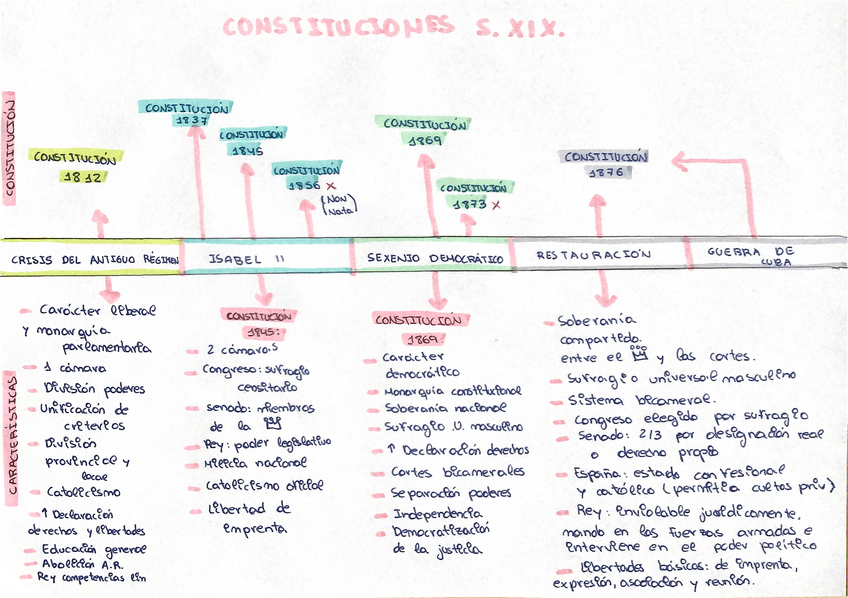 CONSTITUCIONES S. XIX.
CONSTITUCIÓN
CONSTITUCIÓN
1812
CONSTITUCIÓN
1837
CONSTITUCIÓN
1845
CONSTITUCIÓN
1856 X
(Non
Nata)
CONSTITUCIÓN
1869
CONSTITUCIÓN
1873 X
CONSTITUCIÓN
1876
CRISIS DEL ANTIGUO RÉGIMEN
ISABEL II
SEXENIO DEMOCRÁTICO
RESTAURACIÓN
GUERRA DE
CUBA
CARACTERÍSTICAS
- Carácter liberal
y monarquía
parlamentaria
- 1 cámara
- División poderes
- Unificación de
criterios
- División
provincial y
local
- Catolicismo
- ↑ Declaración
derechos y libertades
- Educación general
- Abolición A.R.
- Rey competencias lim
CONSTITUCIÓN
1845:
- 2 cámaras
- Congreso: sufragio
censitario
- senado: miembros
de la
- Rey: poder legislativo
- Milicia nacional
- Catolicismo oficial
- Libertad de
imprenta
CONSTITUCIÓN
1869:
- Carácter
democrático
- Monarquía constitucional
- Soberanía nacional
- Sufragio U. masculino
- ↑ Declaración derechos
- Cortes bicamerales
- Separación poderes
- Independencia
- Democratización
de la justicia
- Soberanía
compartida.
entre el y las cortes.
- Sufragio universal masculino
- Sistema bicameral.
- Congreso elegido por sufragio
- Senado: 2/3 por designación real
o derecho propio
- España: estado confesional
y católico (permitía cultos priv)
- Rey: inviolable jurídicamente,
mando en las fuerzas armadas e
interviene en el poder político
- Libertades básicas: de imprenta,
expresión, asociación y reunión.